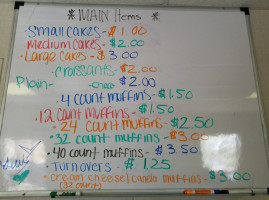 *MAIN Items *
·Small cakes - $1.00
Medium cakes - $2.00
Large cakes - $3.00
·croissants - $2.00
Plain - -choco- $2.00
·4 count muffins - $1.50
12 count muffins - $1.50
·24 count muffins - $2.50
·32 count muffins - $3.00
·40 count muffins - $3.50
·Turnovers - $1.25
·cream cheese/candy muffins - $3.00
(32 count)